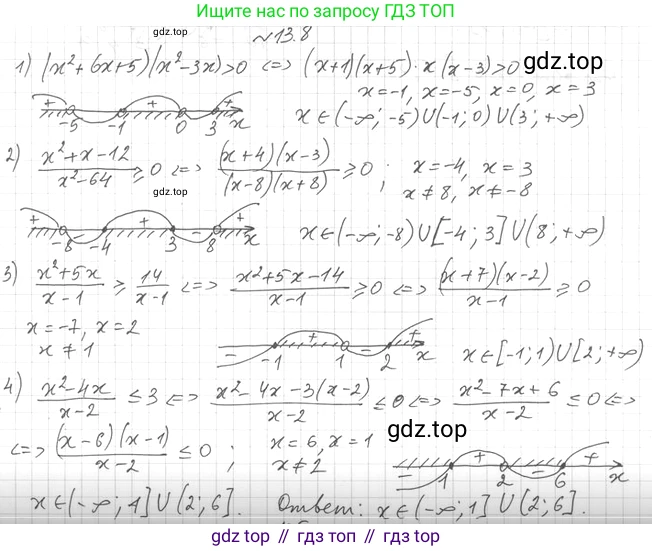 Ищите нас по запросу ГДЗ ТОП
№13.8
1) (x²+6x+5)(x²-3x)>0 <=> (x+1)(x+5)·x(x-3)>0
gdz.top
x=-1, x=-5, x=0, x=3
+ - + - +
-5 -1 0 3 x
x∈(-∞; -5)∪(-1; 0)∪(3; +∞)
gdz.top
2) (x²+x-12)/(x²-64) ≥ 0 <=> ((x+4)(x-3))/((x-8)(x+8)) ≥ 0 ; x=-4, x=3
x≠8, x≠-8
gdz.top
+ - + - +
-8 -4 3 8 x
x∈(-∞; -8)∪[-4; 3]∪(8; +∞)
3) (x²+5x)/(x-1) ≥ 14/(x-1) <=> (x²+5x-14)/(x-1) ≥ 0 <=> ((x+7)(x-2))/(x-1) ≥ 0
x=-7, x=2
x≠1
- + - +
-1 1 2 x
x∈[-1; 1)∪[2; +∞)
4) (x²-4x)/(x-2) ≤ 3 <=> (x²-4x-3(x-2))/(x-2) ≤ 0 <=> (x²-7x+6)/(x-2) ≤ 0 <=>
gdz.top
<=> ((x-6)(x-1))/(x-2) ≤ 0 ; x=6, x=1
x≠2
- + - +
1 2 6 x
x∈(-∞; 1]∪(2; 6]. Ответ: x∈(-∞; 1]∪(2; 6].
gdz.top // гдз топ // гдз.топ